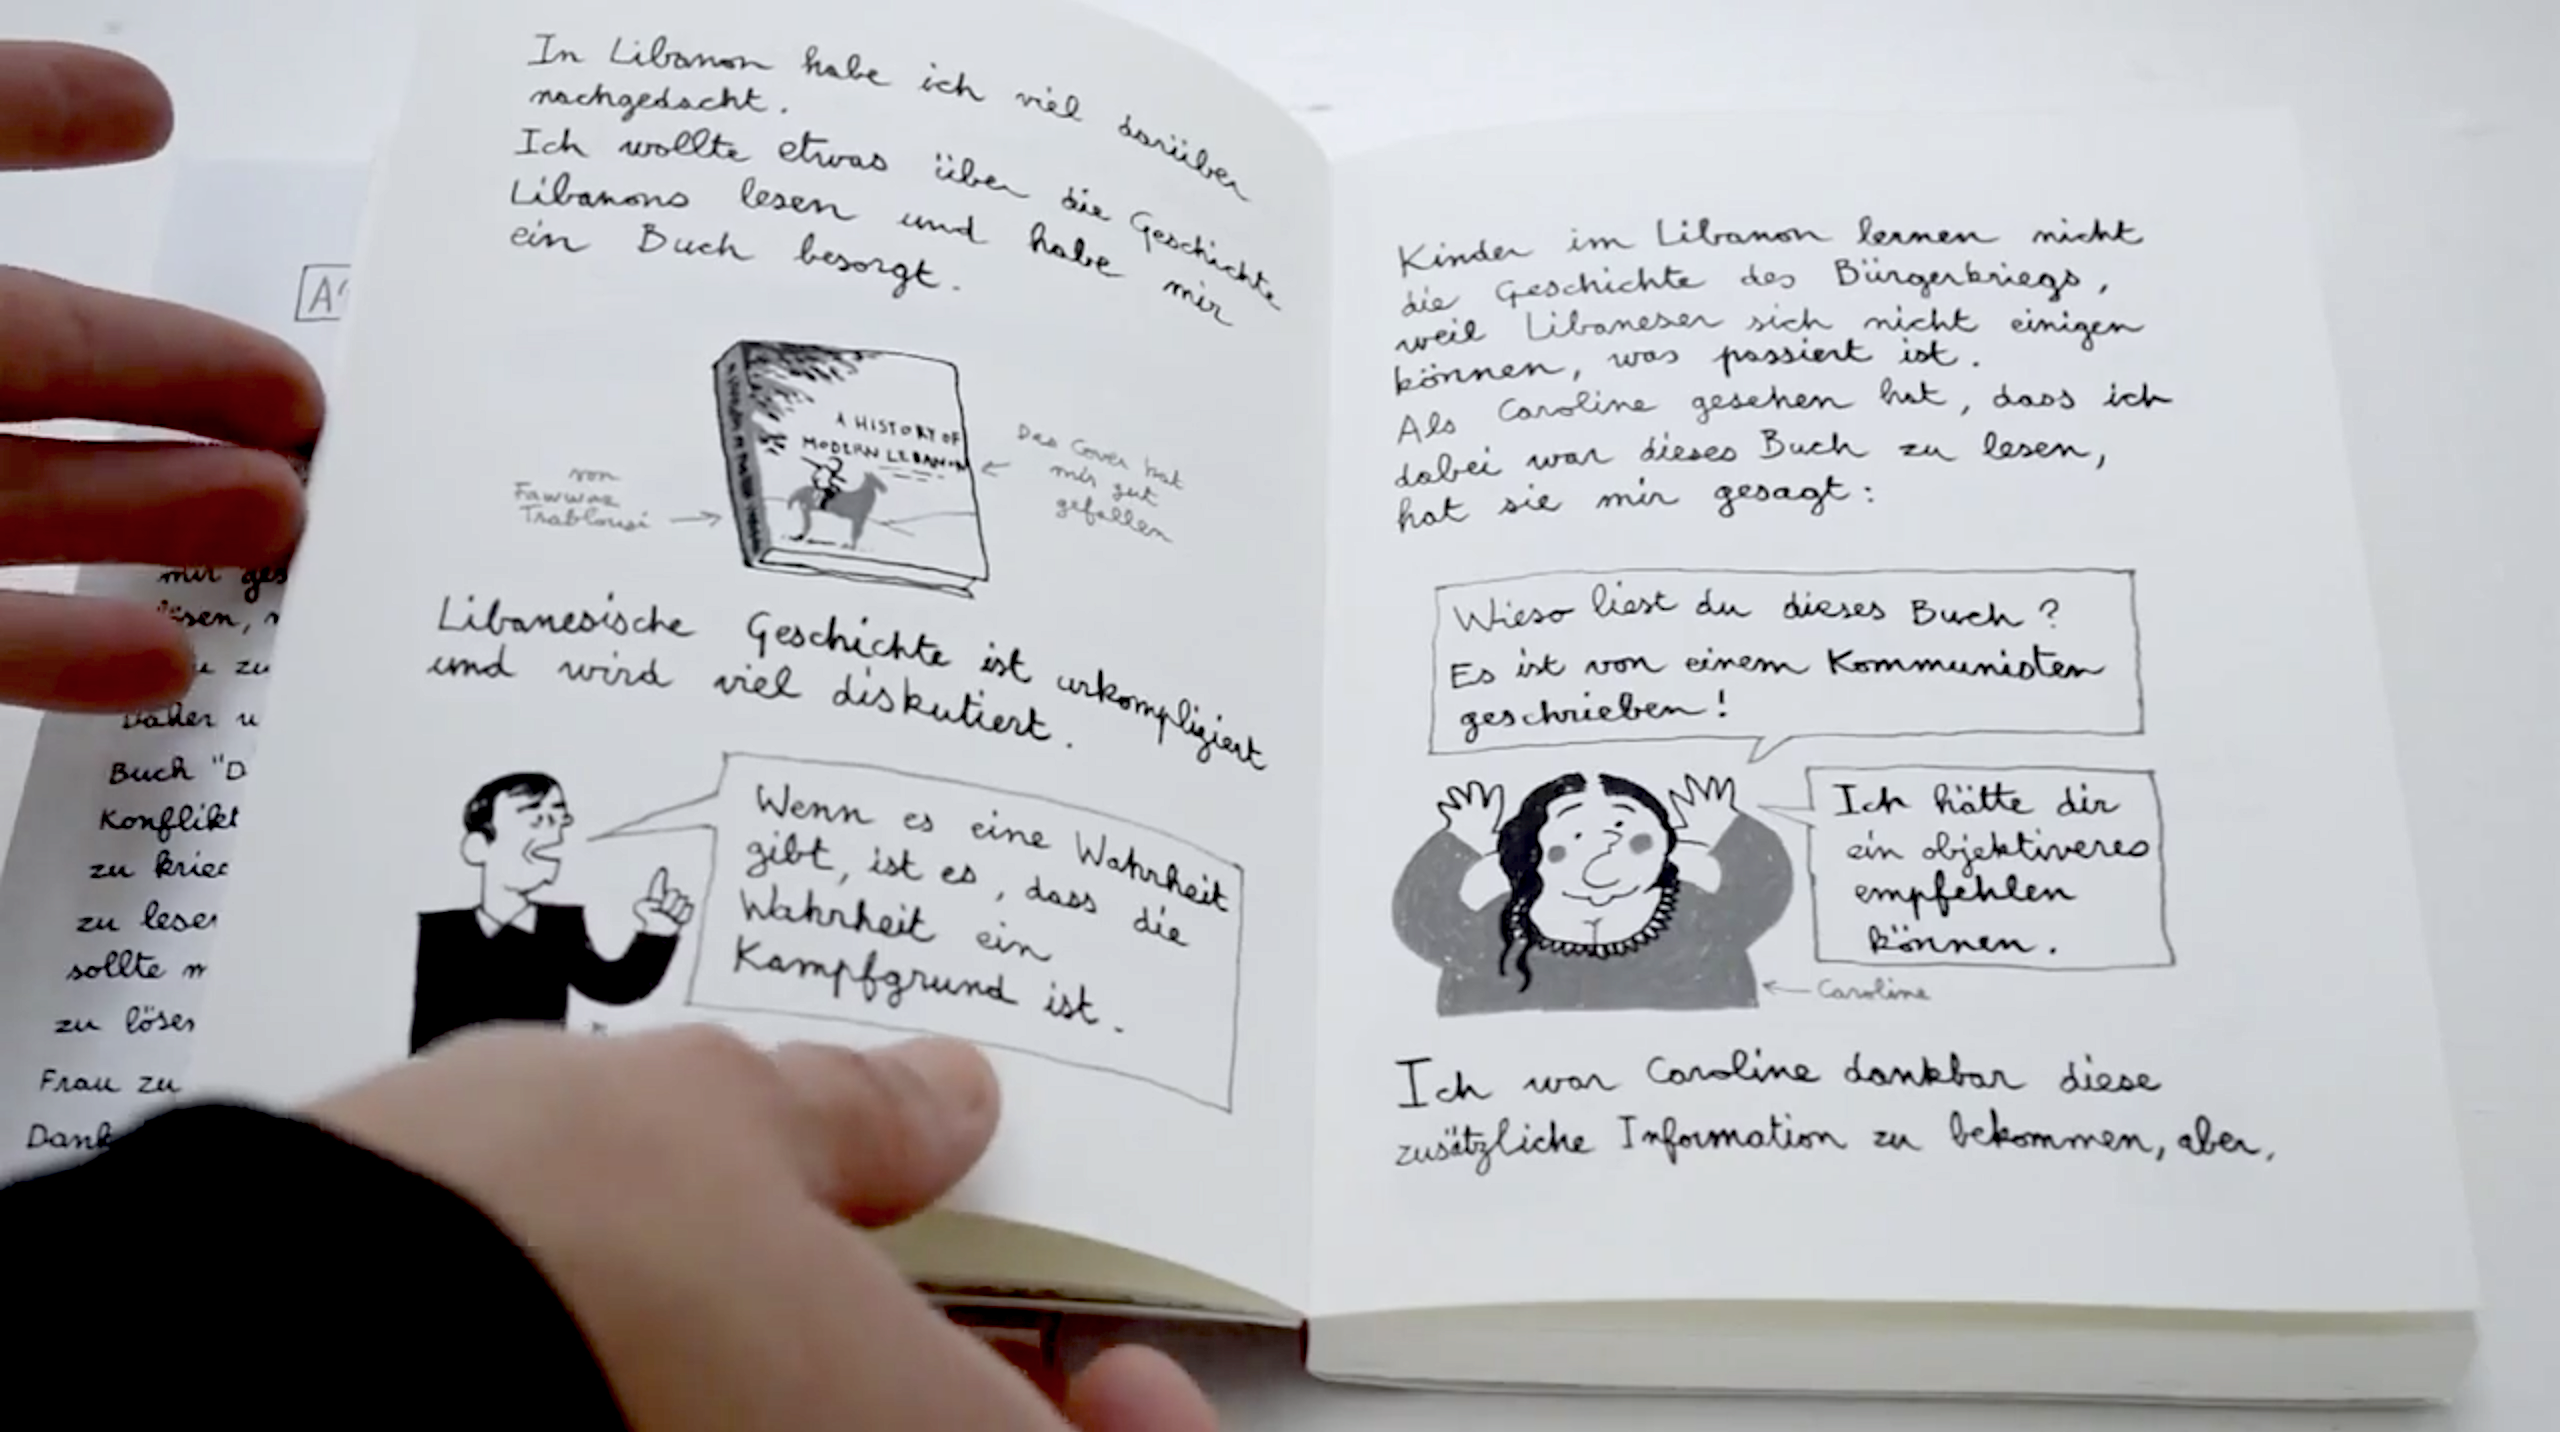 In Libanon habe ich viel darüber
nachgedacht.
Ich wollte etwas über die Geschichte
Libanons lesen und habe mir
ein Buch besorgt.
A HISTORY OF
MODERN LEBANON
von
Fawwaz
Trablousi
Das Cover hat
mir gut
gefallen
Libanesische Geschichte ist urkompliziert
und wird viel diskutiert.
Wenn es eine Wahrheit
gibt, ist es, dass die
Wahrheit ein
Kampfgrund ist.
Kinder im Libanon lernen nicht
die Geschichte des Bürgerkriegs,
weil Libaneser sich nicht einigen
können, was passiert ist.
Als Caroline gesehen hat, dass ich
dabei war dieses Buch zu lesen,
hat sie mir gesagt:
Wieso liest du dieses Buch?
Es ist von einem Kommunisten
geschrieben!
Ich hätte dir
ein objektiveres
empfehlen
können.
Caroline
Ich war Caroline dankbar diese
zusätzliche Information zu bekommen, aber,
mir ges
zu
Daher u
Buch "D
Konflikt
zu
zu leser
sollte m
zu löser
Frau zu
Dank